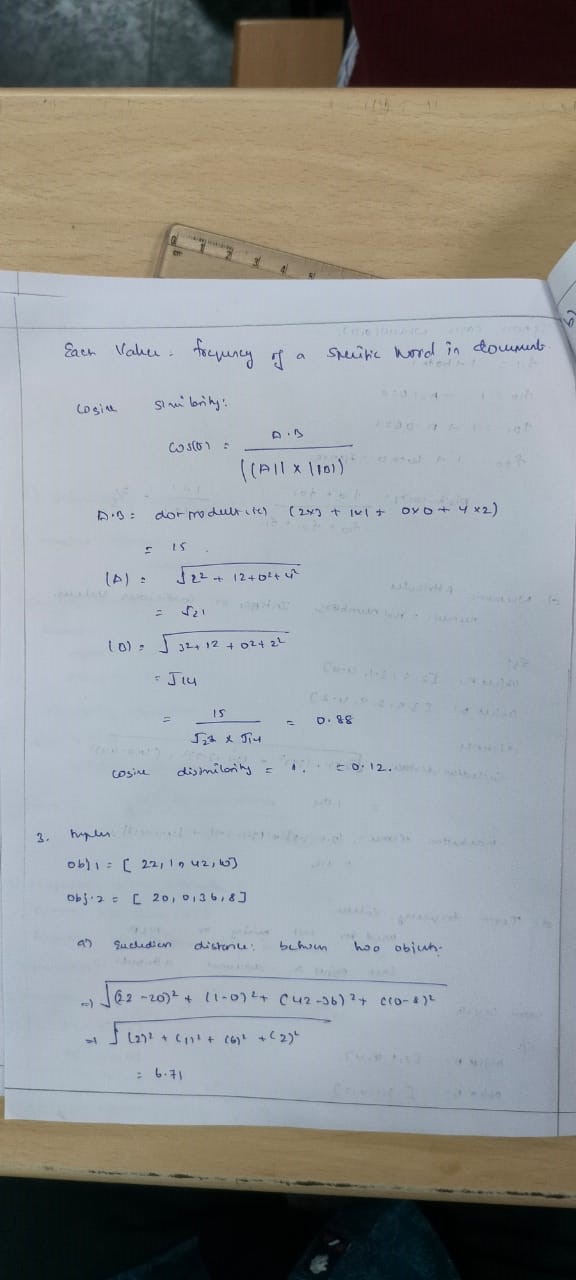 Each Value: frequency of a specific word in document.
cosine similarity:
cos(θ) = A·B
||A|| x ||B||
A·B = dot product (2x3 + 1x1 + 0x0 + 4x2)
= 15
(A) = √2² + 12+0²+4²
= √21
(B) = √32+12+02+2²
= √14
= 15 / √21 x √14 = 0.88
cosine dissimilarity = 1. = 0.12.
3. tuples
obj1 = [22, 1, 42, 10]
obj.2 = [20, 0, 36, 8]
a) Euclidean distance: between two objects.
=) √(22-20)² + (1-0)² + (42-36)² + (10-8)²
=) √(2)² + (1)² + (6)² + (2)²
= 6.71